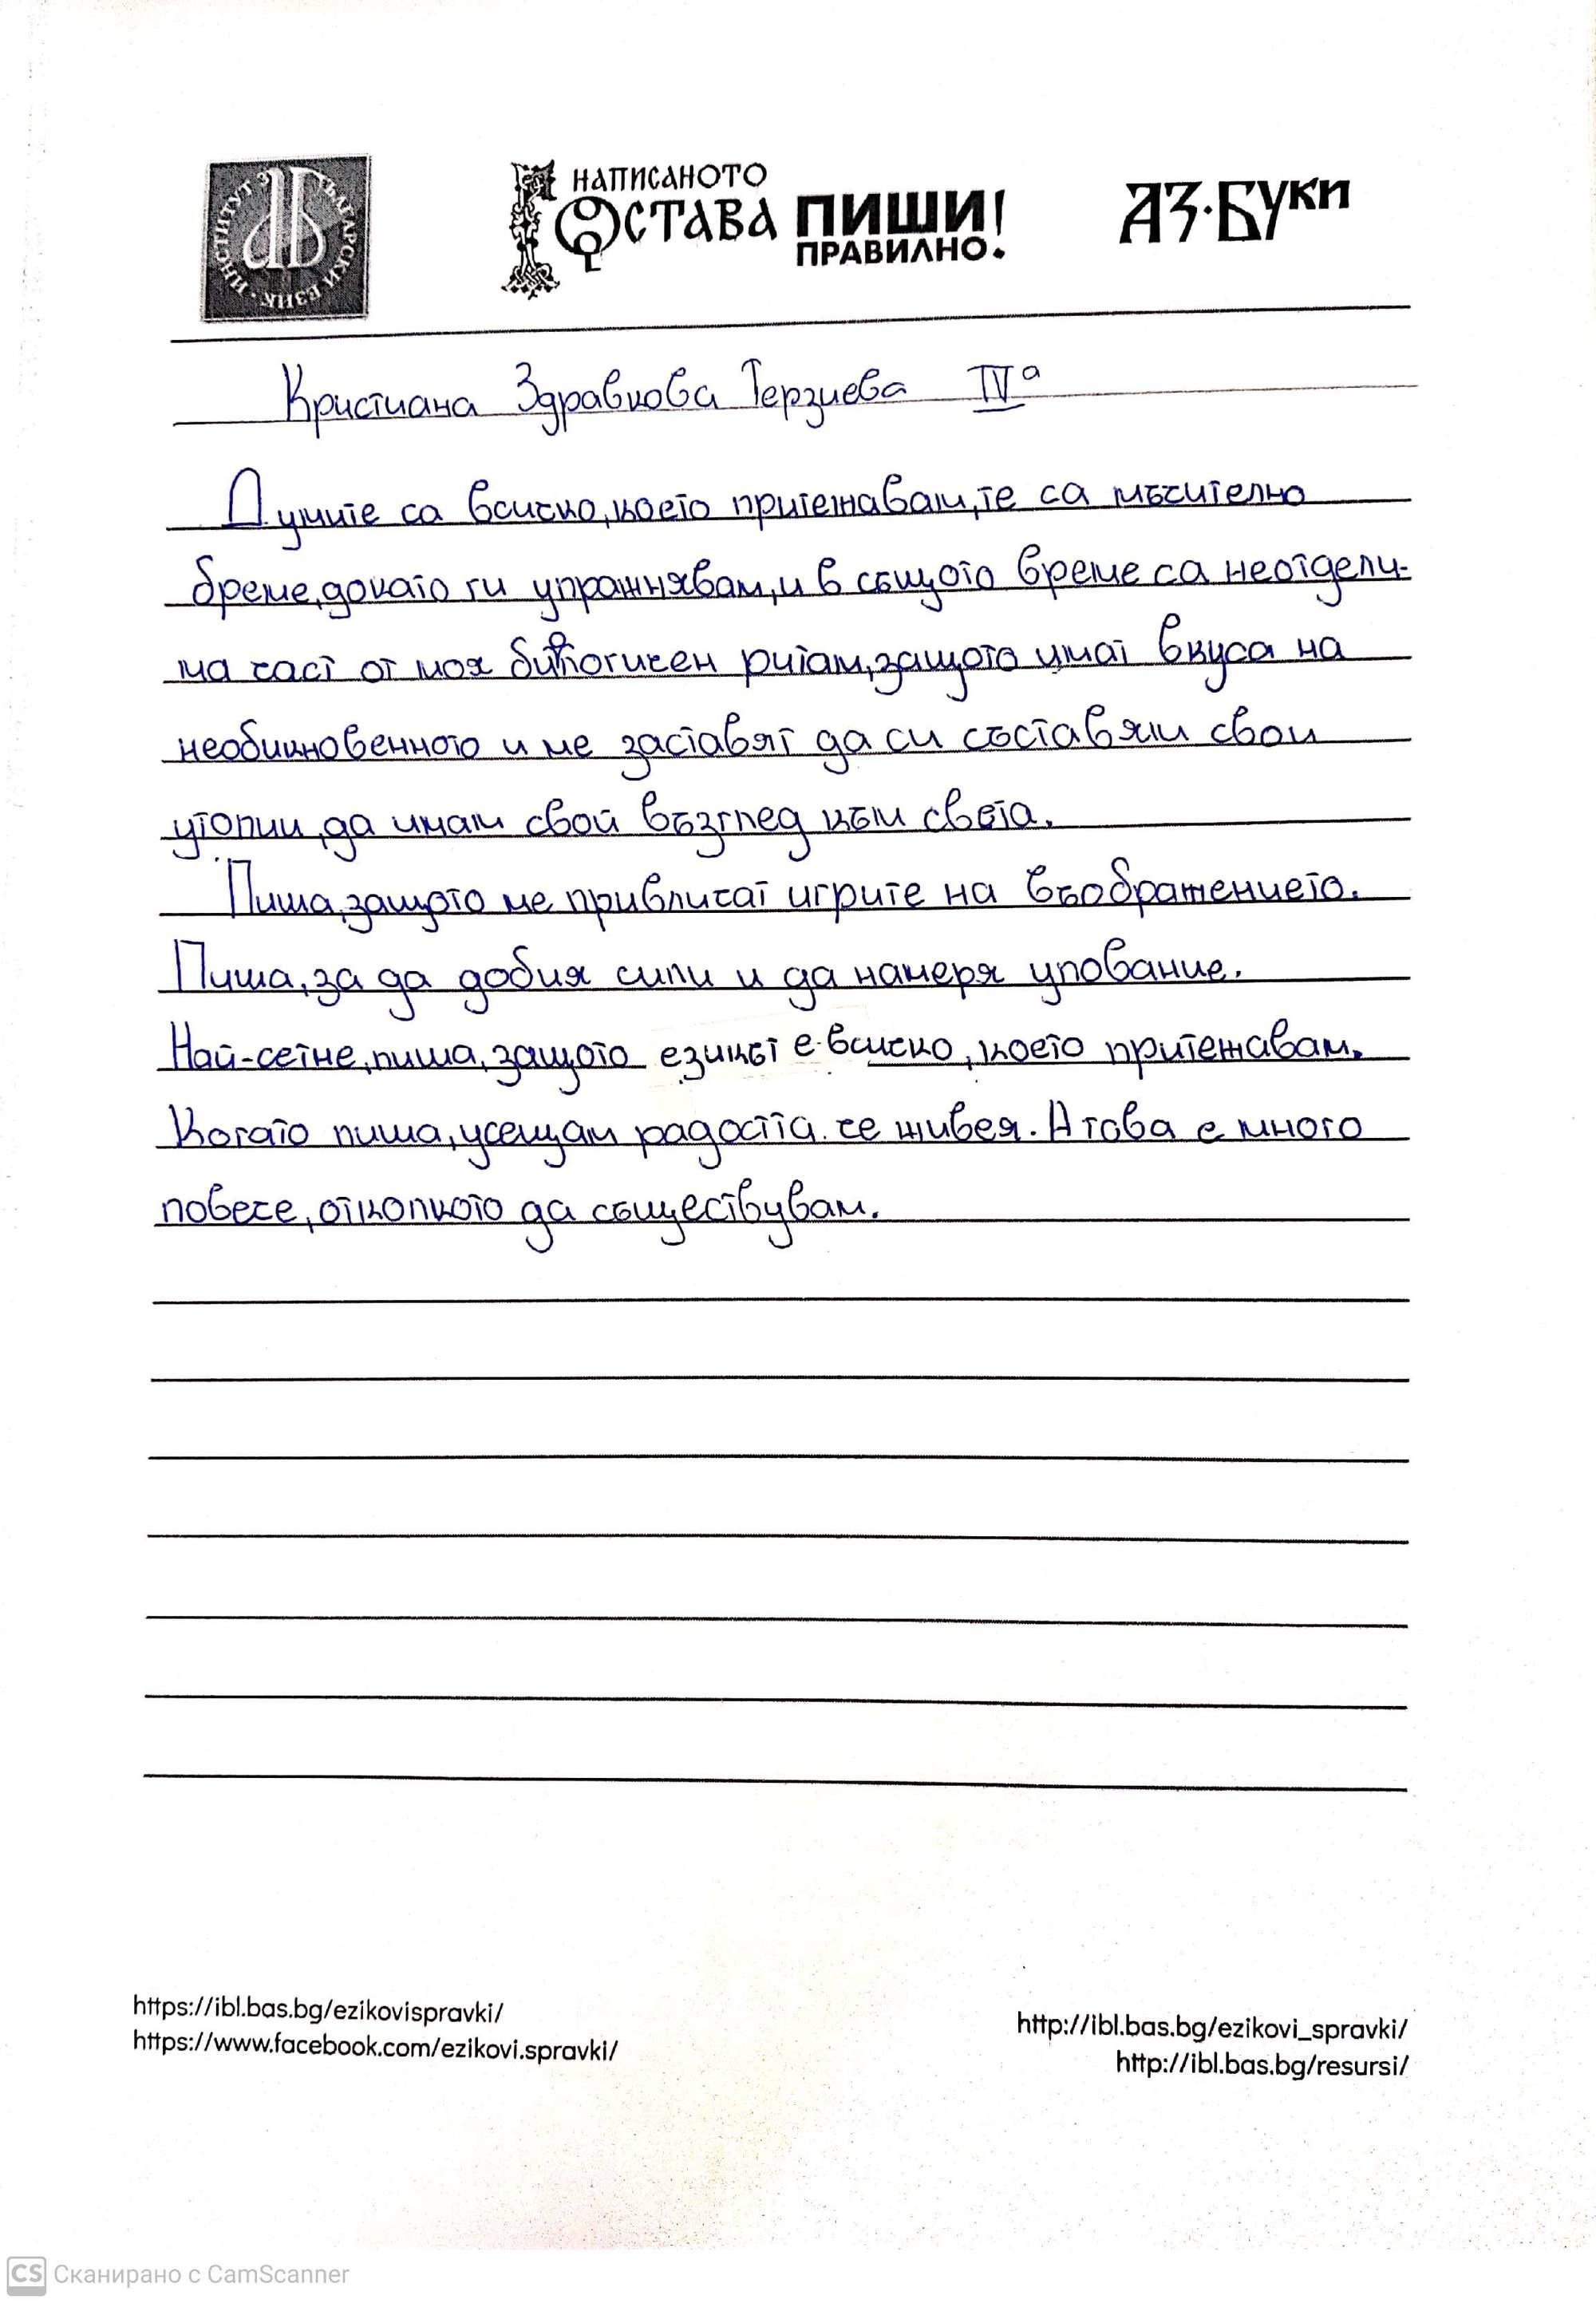 ИНСТИТУТ ЗА БЪЛГАРСКИ ЕЗИК
НАПИСАНОТО
ОСТАВА
ПИШИ!
ПРАВИЛНО.
АЗ·БУКИ
Кристиана Здравкова Терзиева IVа
Думите са всичко, което притежавам, те са мъчително
бреме, докато ги упражнявам, и в същото време са неотдели-
ма част от моя биологичен ритъм, защото имат вкуса на
необикновенното и ме заставят да си съставям свои
утопии, да имам свой възглед към света.
Пиша, защото ме привличат игрите на въображението.
Пиша, за да добия сили и да намеря упование.
Най-сетне, пиша, защото езикът е всичко, което притежавам.
Когато пиша, усещам радостта че живея. А това е много
повече, отколкото да съществувам.
https://ibl.bas.bg/ezikovispravki/
https://www.facebook.com/ezikovi.spravki/
http://ibl.bas.bg/ezikovi_spravki/
http://ibl.bas.bg/resursi/
CS Сканирано с CamScanner